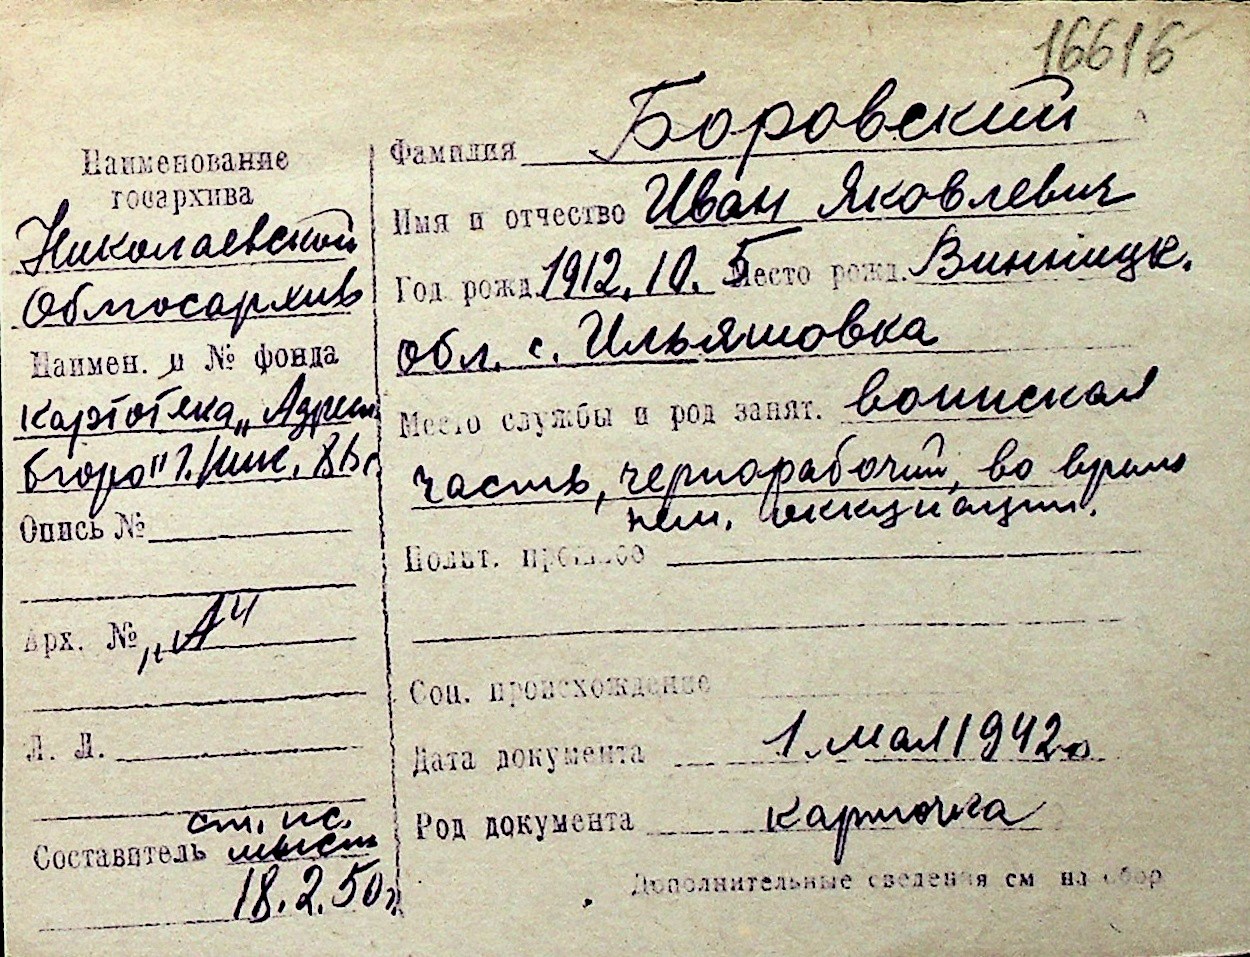 16616
Наименование
госархива
Николаевской
Облгосархив
Наимен. и № фонда
картотека „Адресн
бюро" г. Ник.
Опись №
Арх. № „А"
Л. Л.
Составитель ст. ис.
18.2.50г.
Фамилия Боровский
Имя и отчество Иван Яковлевич
Год рожд. 1912.10.5 Место рожд. Винницк.
обл. с. Ильяшовка
Место службы и род занят. воинская
часть, чернорабочий, во время
нем. оккупации.
Полит. прошлое
Соц. происхождение
Дата документа 1. мая 1942 г.
Род документа карточка
Дополнительные сведения см на обор